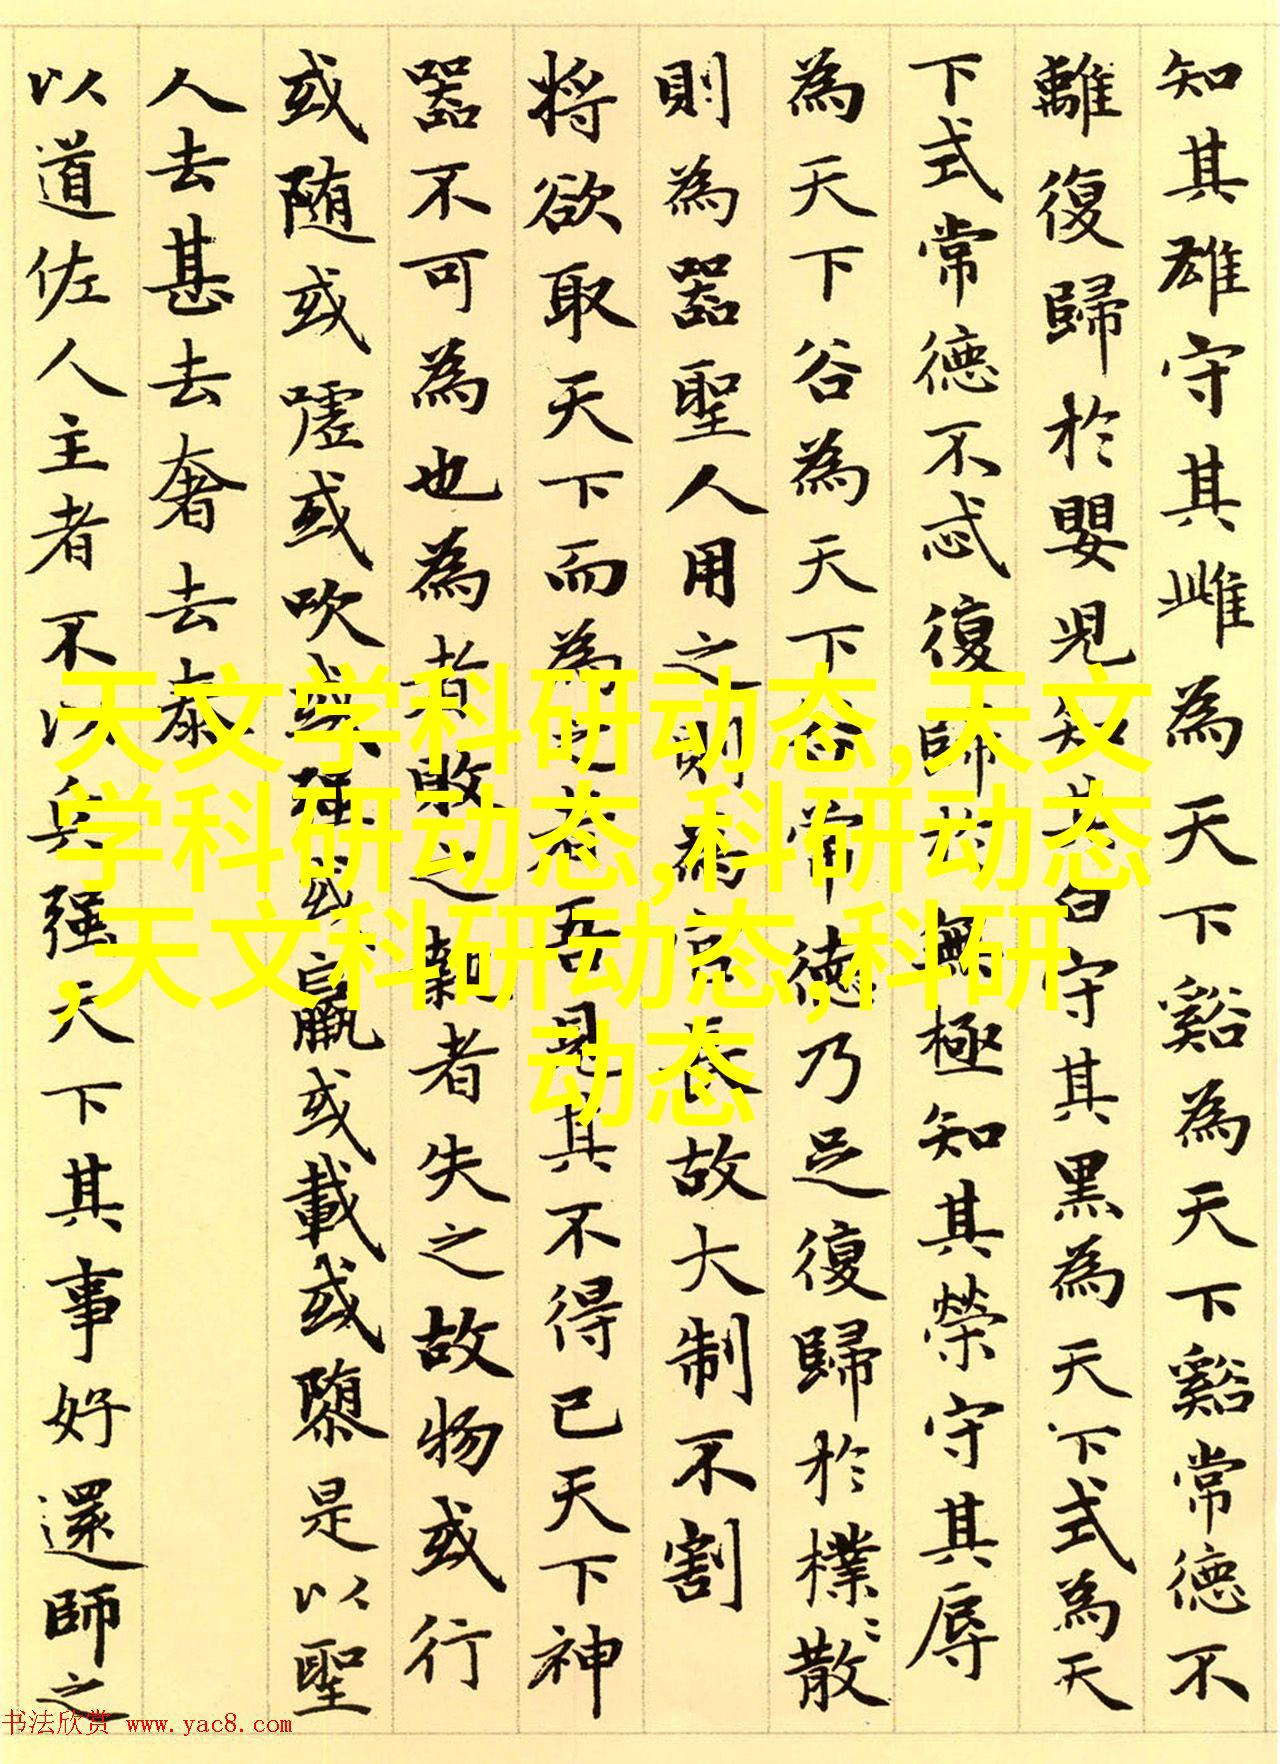 知其雄守其雌為天下谿為天下谿常德不
離復歸於嬰兒知其白守其黑為天下式為天
下式常德不忒復歸於無極知其榮守其辱
為天下谷為天下谷常德乃足復歸於樸〻散
則為器聖人用之則為官長故大制不割
將欲取天下而為之者吾見其不得已天下神
器不可為也為者敗之執者失之故物或行
或随或噓或吹或强或羸或載或隳是以聖
人去甚去奢去泰
以道佐人主者不以兵强天下其事好還師之
天文学科研动态,天文
学科研动态,科研动态
,天文科研动态,科研
动态
书法欣赏 www.yac8.com